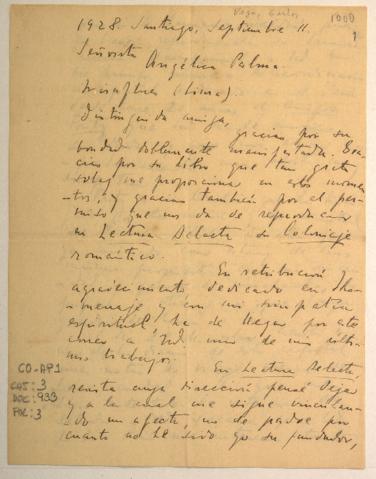 Vega, Carlos
1000
1
1928. Santiago, Septiembre 11.
Señorita
Angélica Palma.
Miraflores (Lima).
Distinguida amiga,
gracias por su
bondad doblemente manifestada. Gra-
cias por su libro que tan grato
solaz me proporciona en estos momen-
tos, y gracias también por el per-
miso que nos da de reproducir
en Lectura Selecta su Coloniaje
romántico.
En retribución y
agradecimiento dedicado en
menaje y con mi simpatía
espiritual, ha de llegar por este
correo a Ud. uno de mis últi-
mos trabajos.
En Lectura Selecta,
revista cuya dirección pensé dejar
y a la cual me sigue vinculan-
do un afecto, no de padre por
cuanto no he sido yo su fundador,
CO-AP1
CAJ: 3
DOC: 933
FOL: 3